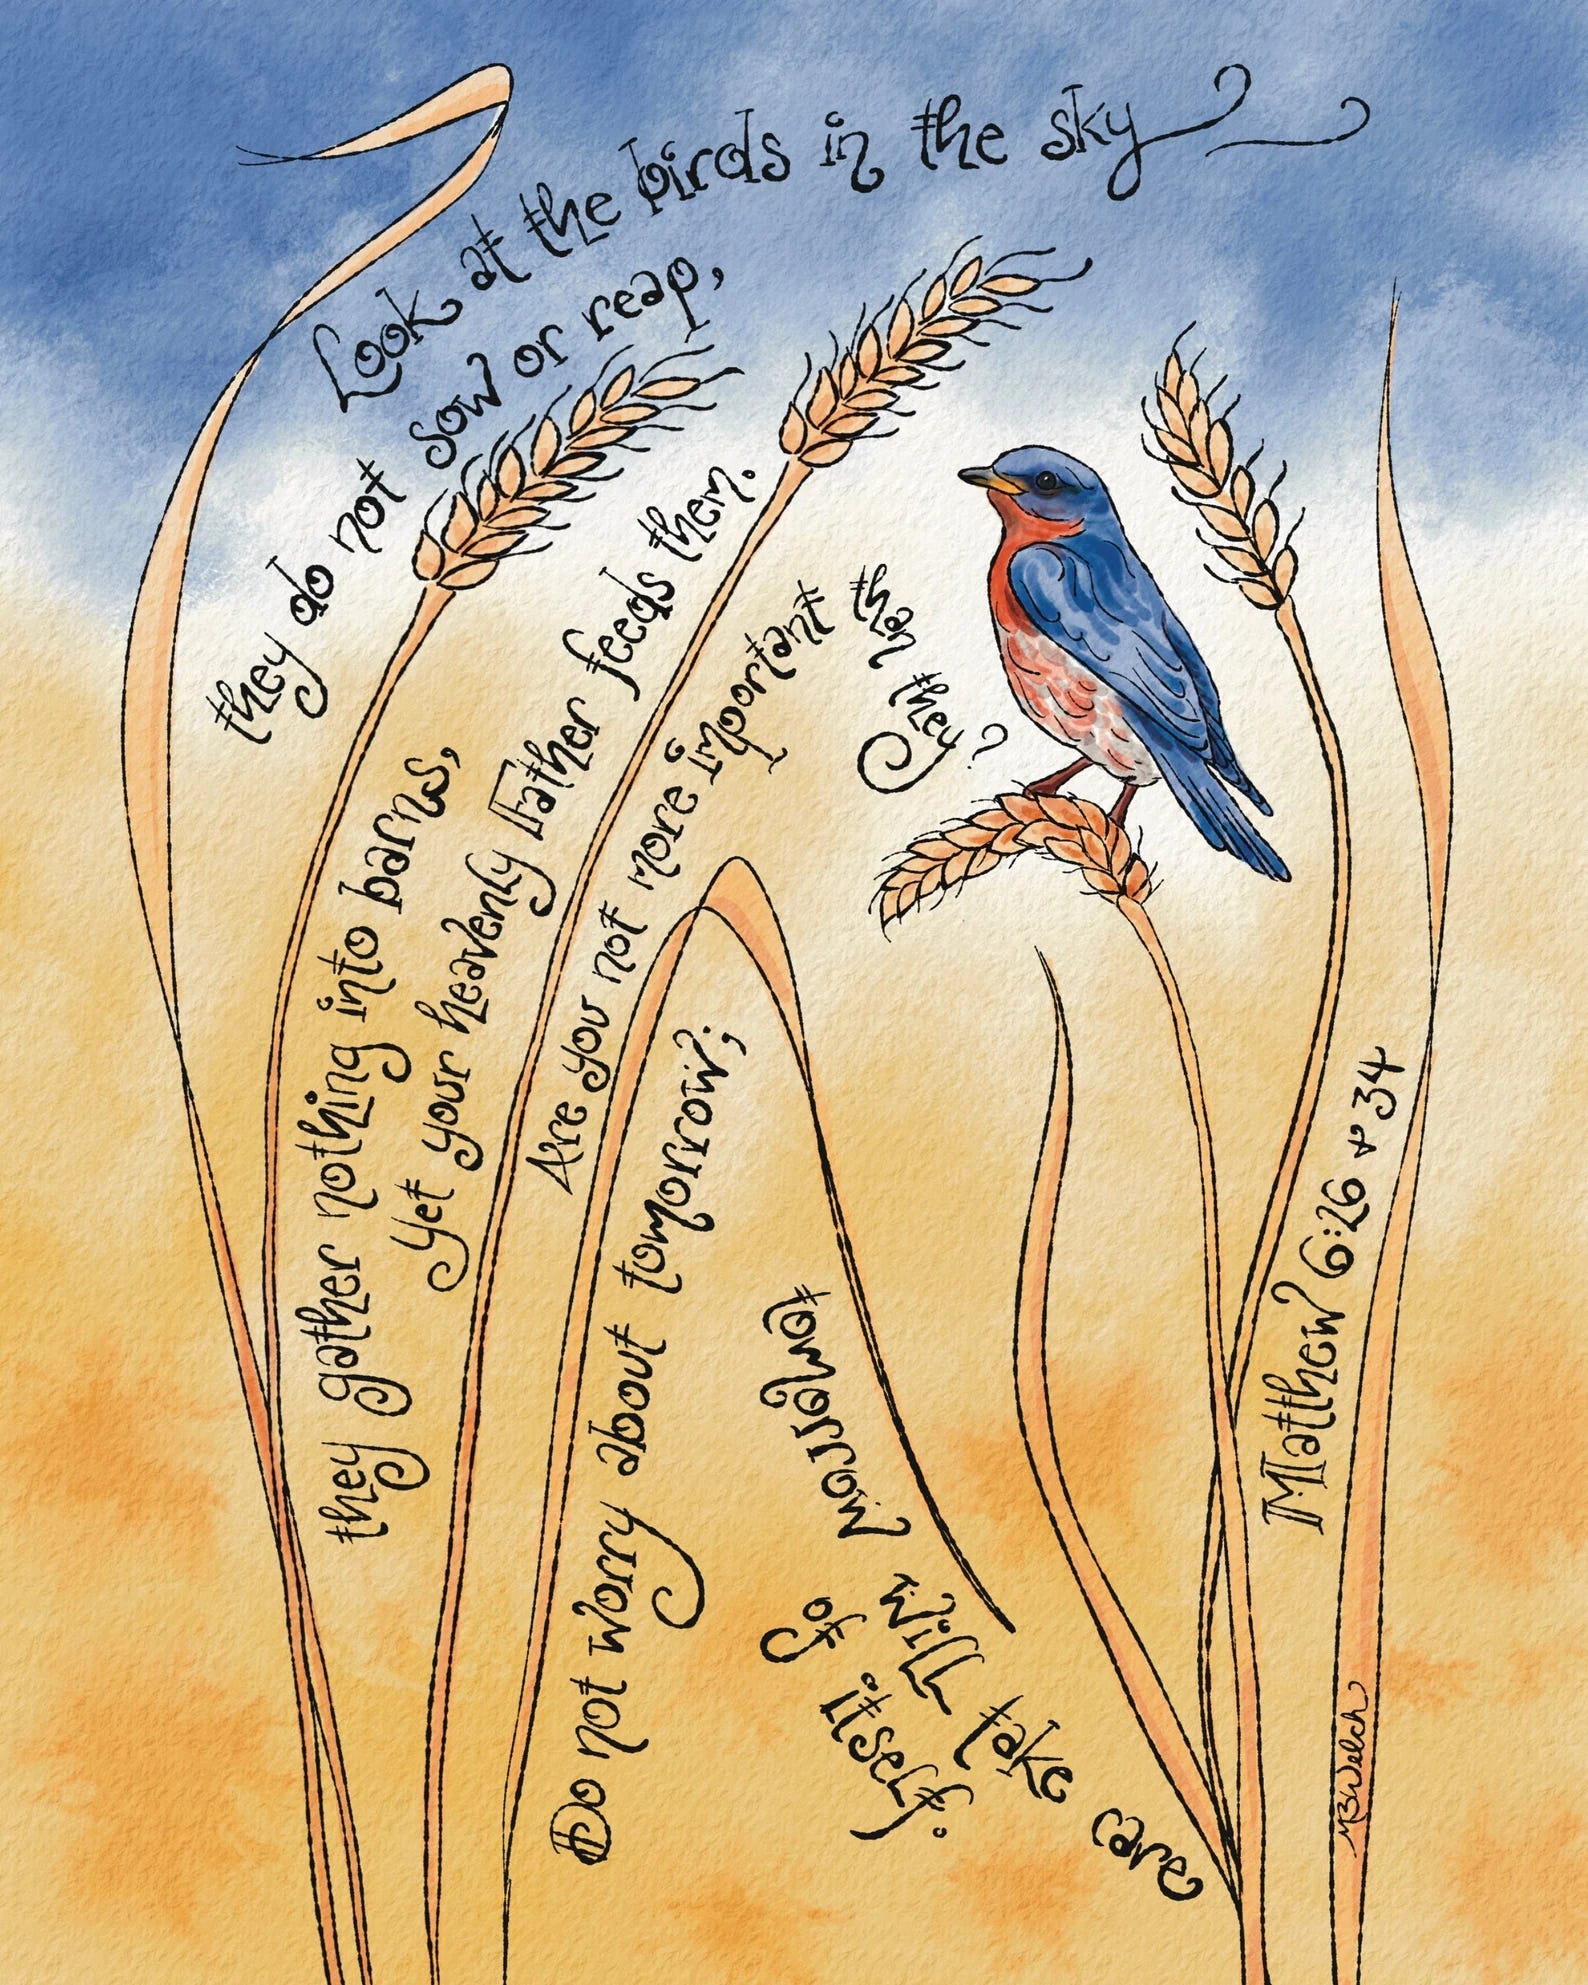 Look at the birds in the sky
they do not sow or reap,
they gather nothing into barns,
yet your heavenly Father feeds them.
Are you not more important
than they?
Do not worry about tomorrow;
tomorrow will take care
of itself.
Matthew 6:26 & 34
MBWelch